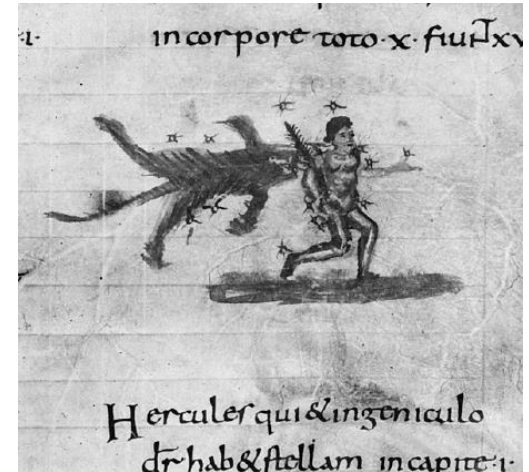 ·i· in corpore toto·x· fiunt xv
Hercules qui & ingeniculo
dr hab& stellam in capite·i·